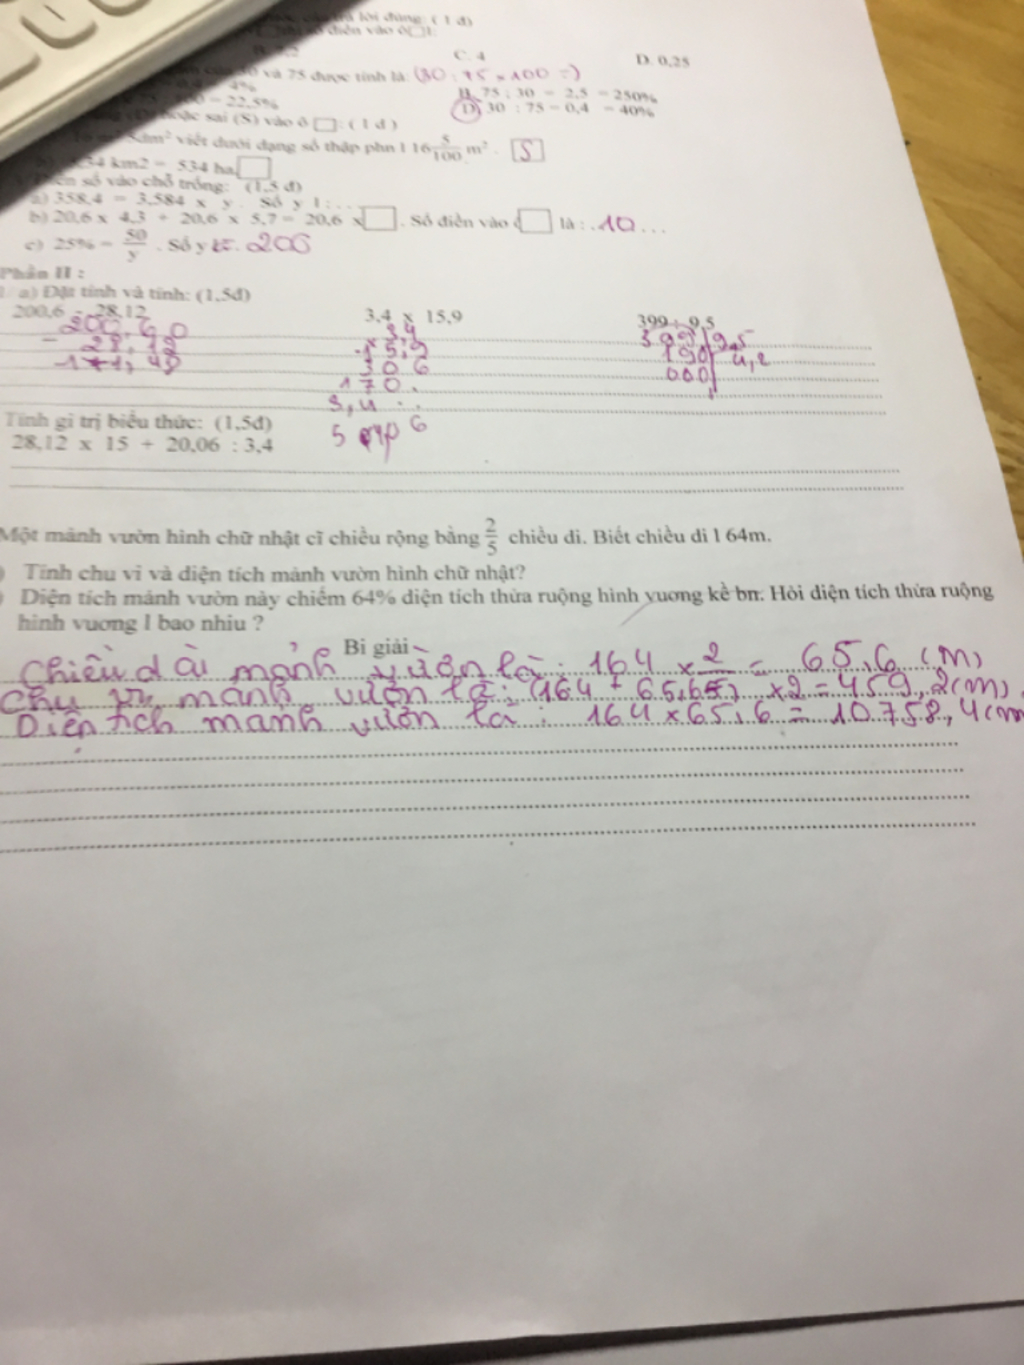 lời đúng: ( 1 đ)
điền vào ô
C. 4 D. 0,25
và 75 được tính là: (30 : 75 x 100 = )
4% B. 75 : 30 = 2,5 = 250%
= 22,5% D. 30 : 75 = 0,4 = 40%
hoặc sai (S) vào ô □: ( 1 đ )
viết dưới dạng số thập phn l 16 5/100 m² . S
km2 = 534 ha
số vào chỗ trống: (1,5 đ)
a) 358,4 = 3,584 x y . Số y l :. . .
b) 20,6 x 4,3 + 20,6 x 5,7 = 20,6 x □ . Số điền vào □ là : .10 . . .
c) 25% = 50/y . Số y 200
Phần II :
a) Đặt tính và tính: (1,5đ)
200,6 - 28,12 3,4 x 15,9 399 : 9,5
200,60 3,4 399 9,5
- 28,12 x 15,9 190 4,2
306 000
170.
3,4 . .
Tính gi trị biểu thức: (1,5đ)
28,12 x 15 + 20,06 : 3,4
Một mảnh vườn hình chữ nhật cĩ chiều rộng bằng 2/5 chiều di. Biết chiều di l 64m.
Tính chu vi và diện tích mảnh vườn hình chữ nhật?
Diện tích mảnh vườn này chiếm 64% diện tích thửa ruộng hình vuơng kề bn. Hỏi diện tích thửa ruộng
hình vuơng l bao nhiu ?
Bi giải
Chiều dài mảnh vườn là : 164 x 2/5 = 65,6 (m)
chu vi mảnh vườn là : (164 + 65,6) x 2 = 459,2 (m)
Diện tích mảnh vườn là : 164 x 65,6 = 10.758,4 (m